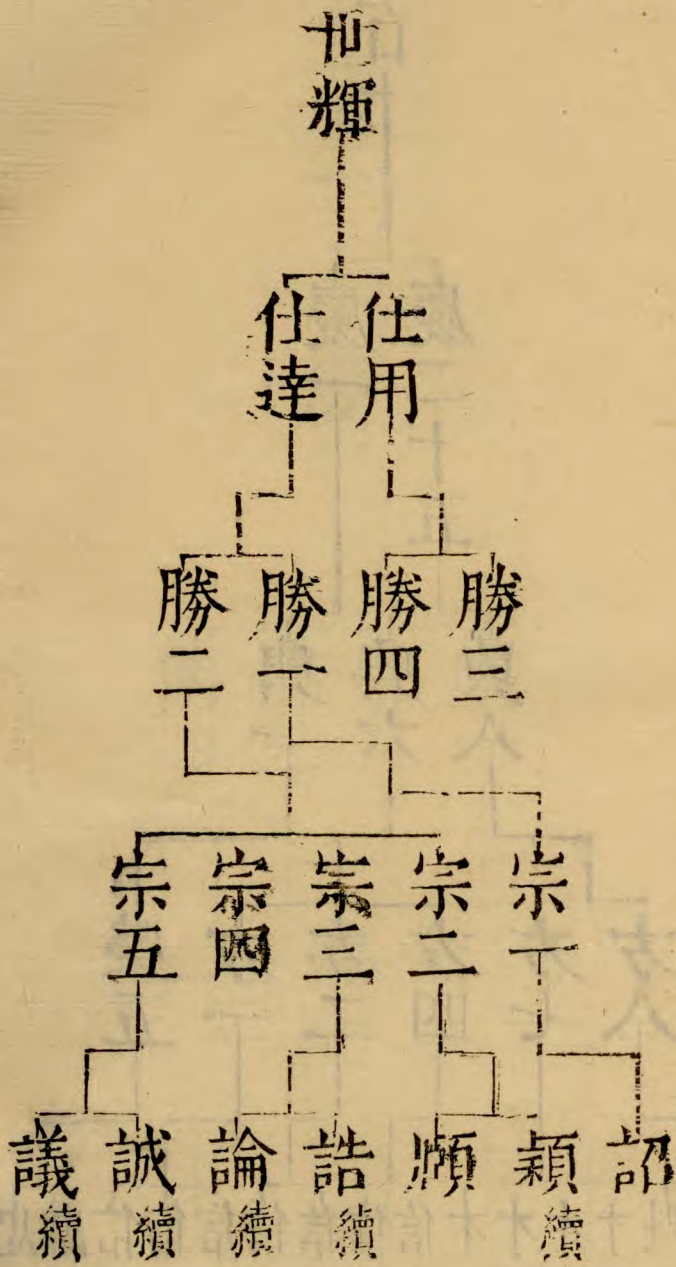 世輝
仕用
仕達
勝三
勝四
勝一
勝二
宗一
宗二
宗三
宗四
宗五
詔
穎續
誥續
論續
誠續
議續